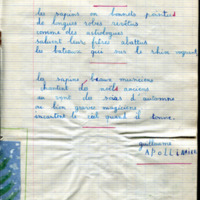 les sapins en bonnets pointus
de longues robes revêtus
comme des astrologues
saluent leurs frères abattus
les bateaux qui sur le rhin voguent
les sapins beaux musiciens
chantent des noëls anciens
au vent des soirs d'automne
ou bien graves magiciens
incantent le ciel quand il tonne
guillaume
APOLLINAIRE